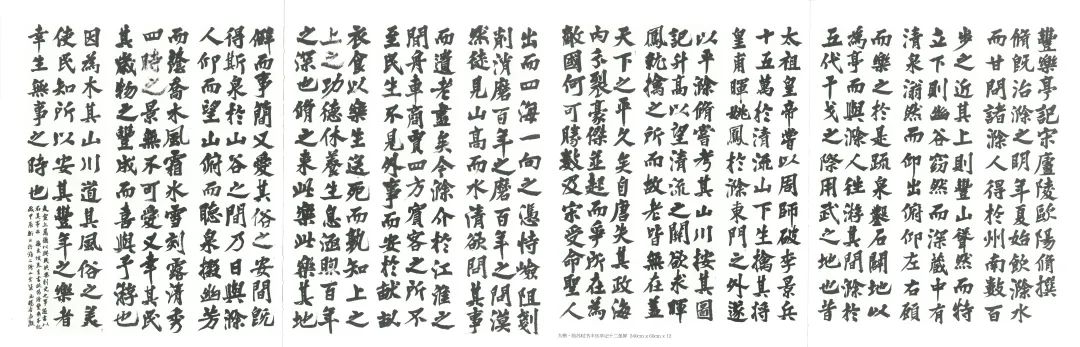 豐樂亭記宋廬陵歐陽脩撰
脩既治滁之明年夏始飲滁水
而甘問諸滁人得於州南數百
步之近其上則豐山聳然而特
立下則幽谷窈然而深藏中有
清泉滃然而仰出俯仰左右顧
而樂之於是疏泉鑿石闢地以
為亭而與滁人往游其間滁於
五代干戈之際用武之地也昔
太祖皇帝嘗以周師破李景兵
十五萬於清流山下生擒其將
皇甫暉姚鳳於滁東門之外遂
以平滁脩嘗考其山川按其圖
記升高以望清流之關欲求暉
鳳就擒之所而故老皆無在蓋
天下之平久矣自唐失其政海
內分裂豪傑並起而爭所在為
敵國何可勝數及宋受命聖人
出而四海一向之憑恃險阻剗
削消磨百年之磨百年之間漠
然徒見山高而水清欲問其事
而遺老盡矣今滁介於江淮之
間舟車商賈四方賓客之所不
至民生不見外事而安於畎畝
衣食以樂生送死而孰知上之
上之功德休養生息涵煦百年
之深也脩之來此樂此樂其地
僻而事簡又愛其俗之安閒既
得斯泉於山谷之間乃日與滁
人仰而望山俯而聽泉掇幽芳
而蔭喬木風霜冰雪刻露清秀
四時之景無不可愛又幸其民
其歲物之豐成而喜與予游也
因為本其山川道其風俗之美
使民知所以安其豐年之樂者
幸生無事之時也
240cm x 60cm x 12